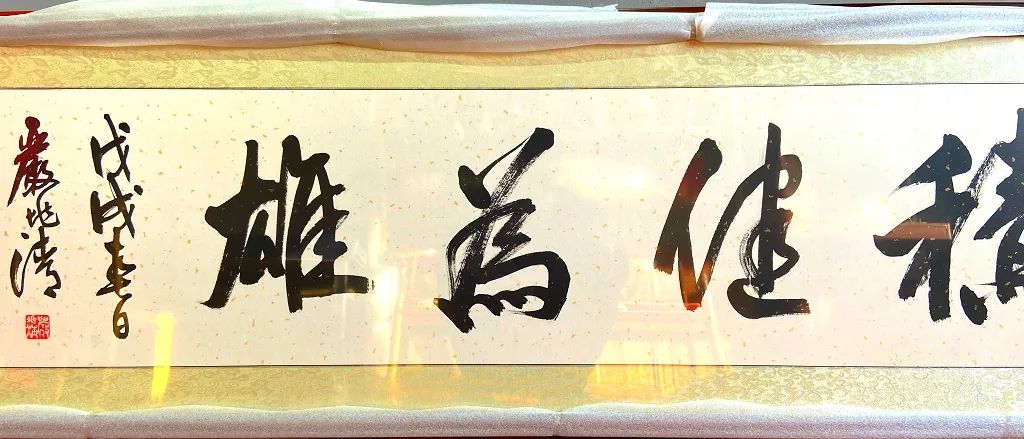 積健為雄
戊戌春日
嚴兆清